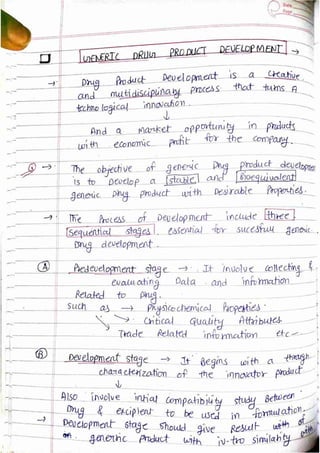 Date
Page
GENERIC DRUG PRODUCT DEVELOPMENT →
→ Drug Product Development is a creative
and multidisciplinary process that turns A
technological innovation.
↓
And a market opportunity in products
with economic profit for the company.
→ The objective of generic Drug product developes
is to Develop a stable and Bioequivalent
generic Drug product with Desirable Properties.
→ The Process of Development include three
Sequential stages, essential for sucessfull generic
Drug development.
(A) Predevelopment stage → It involve collecting &
evaluating Data and information
Related to Drug.
Such as → Physicochemical Properties
→ Critical Quality Attributes
→ Trade Related information etc—
(B) Development stage → It Begins with a
characterization of the innovator product
↓
Also involve intial compatibility study Between
Drug & excipient to be used in formulation.
→ Development stage should give Result with of
generic Product with in-vitro similarity with